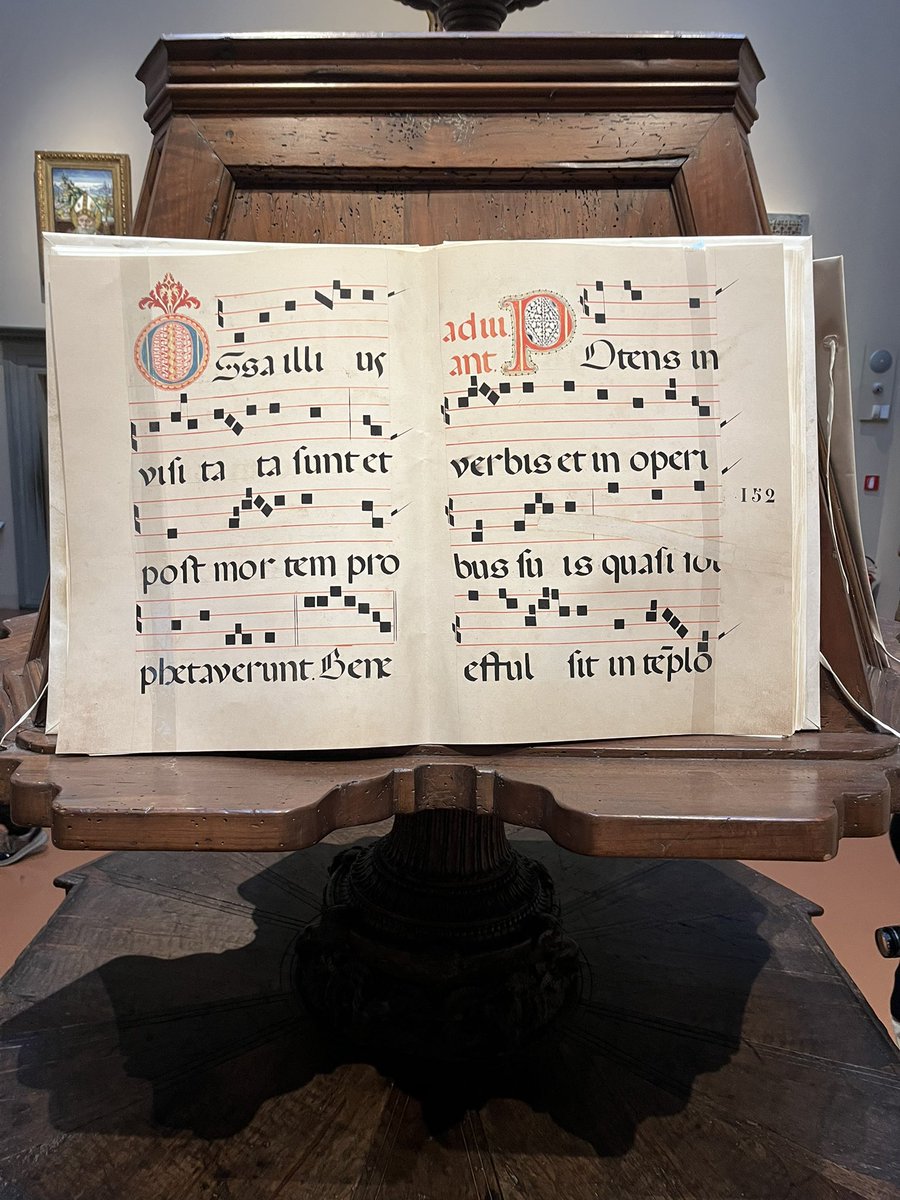 OSsa illi us
visi ta ta sunt et
post mor tem pro
phetaverunt. Bene
ad iii
ant
POtens in
verbis et in operi
bus su is quasi
efful sit in tēplo
152